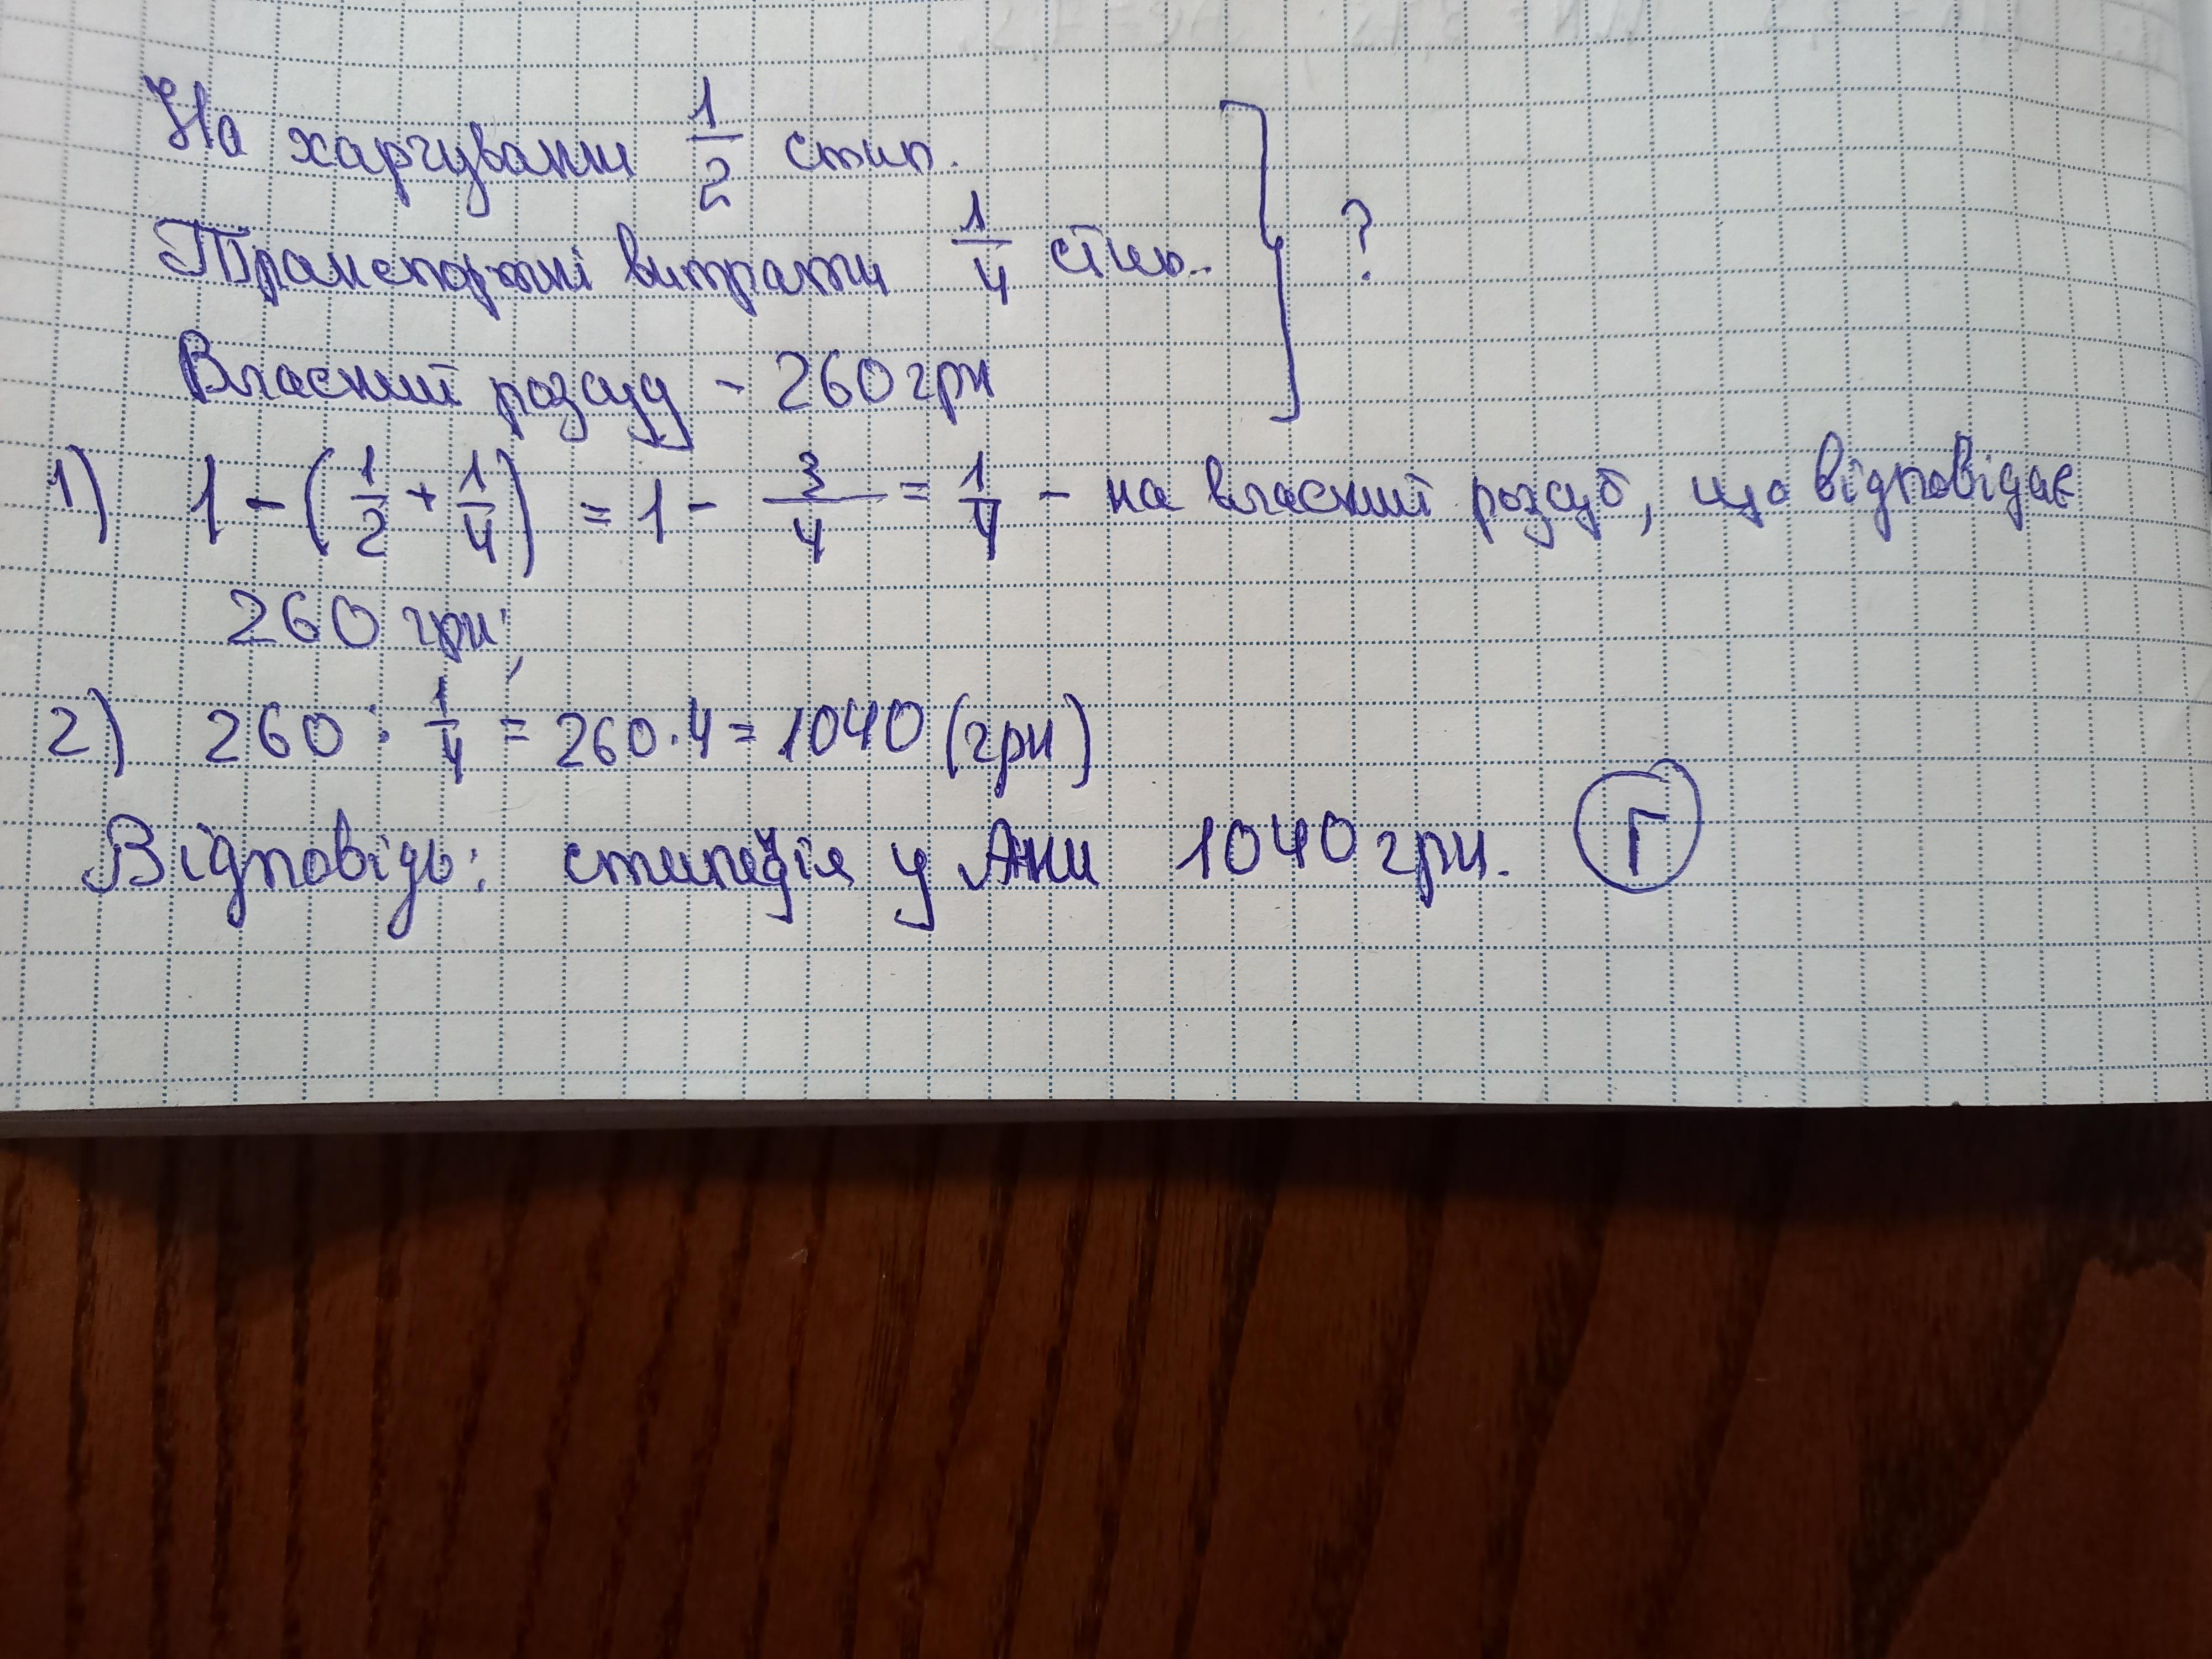 На харчування 1/2 стип.
Транспортні витрати 1/4 стип.
Власний розсуд - 260 грн
} ?
1) 1 - (1/2 + 1/4) = 1 - 3/4 = 1/4 - на власний розсуд, що відповідає
260 грн;
2) 260 : 1/4 = 260 · 4 = 1040 (грн)
Відповідь: стипедія у Ани 1040 грн. Г